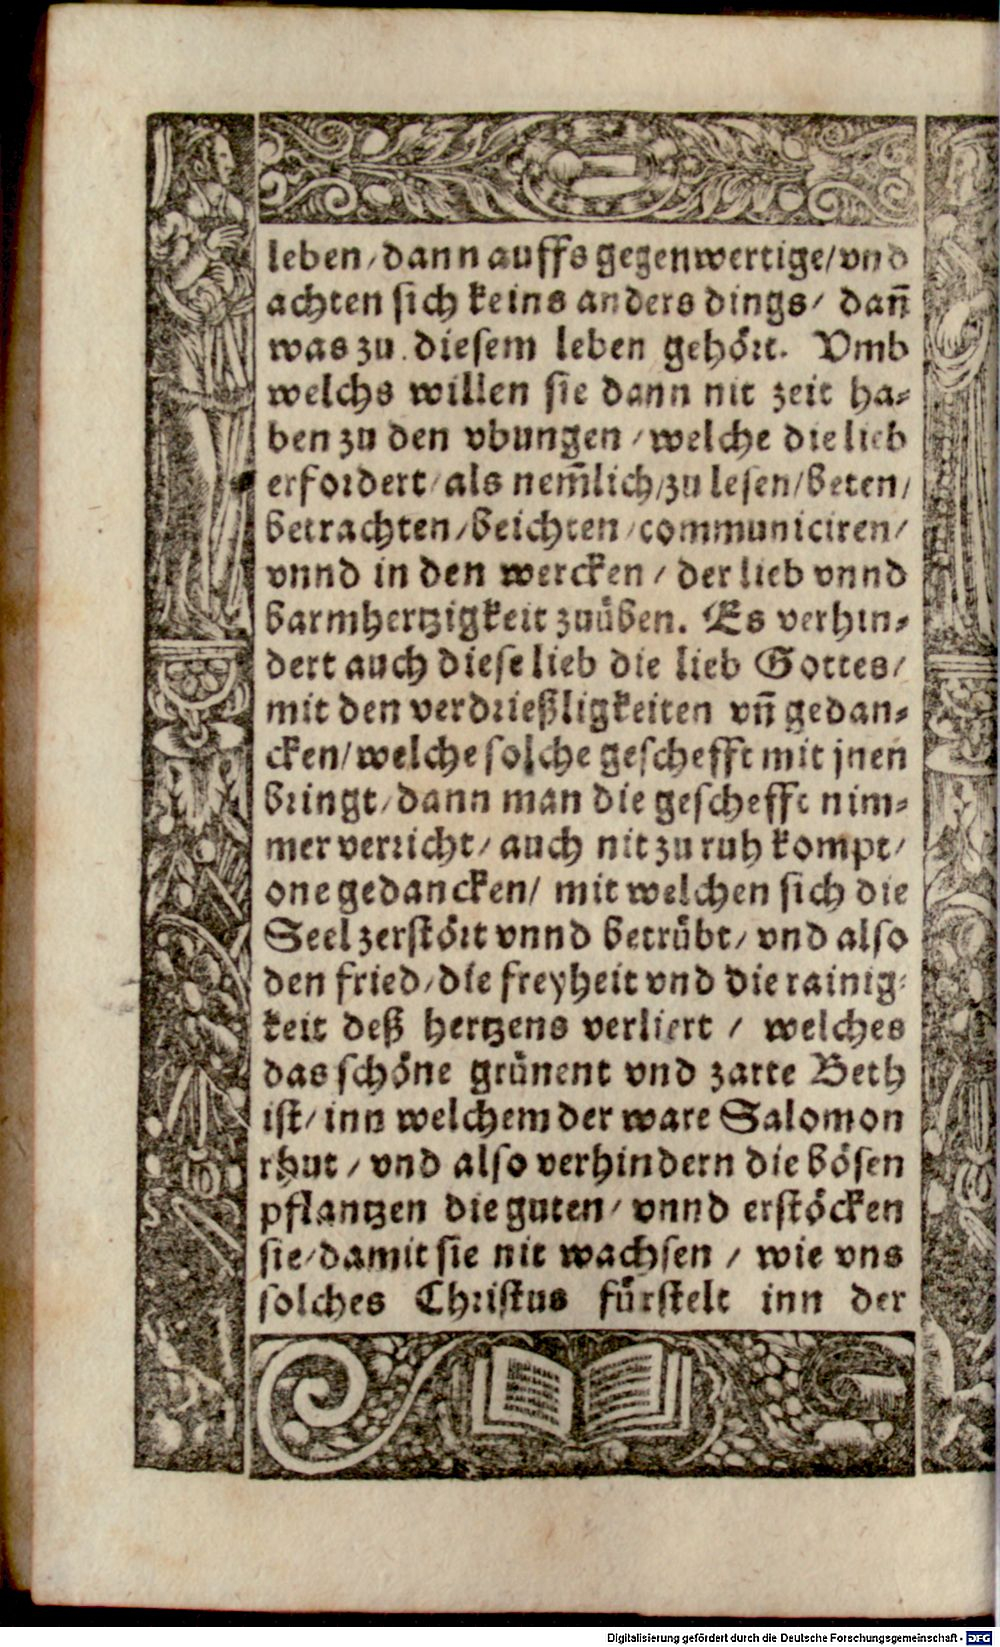 leben/dann auffs gegenwertige/vnd
achten sich keins anders dings/ dañ
was zu diesem leben gehört. Vmb
welchs willen sie dann nit zeit ha⸗
ben zu den vbungen/welche die lieb
erfordert/als nem̃lich/zu lesen/beten/
betrachten/beichten/communiciren/
vnnd in den wercken/ der lieb vnnd
barmhertzigkeit zuüben. Es verhin⸗
dert auch diese lieb die lieb Gottes/
mit den verdrießligkeiten vñ gedan⸗
cken/welche solche geschefft mit jnen
bringt/dann man die geschefft nim⸗
mer verricht/ auch nit zu ruh kompt/
one gedancken/ mit welchen sich die
Seel zerstört vnnd betrübt/ vnd also
den fried/die freyheit vnd die rainig⸗
keit deß hertzens verliert / welches
das schöne grünent vnd zarte Beth
ist/ inn welchem der ware Salomon
rhut / vnd also verhindern die bösen
pflantzen die guten/ vnnd erstöcken
sie/damit sie nit wachsen / wie vns
solches Christus fürstelt inn der
Digitalisierung gefördert durch die Deutsche Forschungsgemeinschaft - DFG